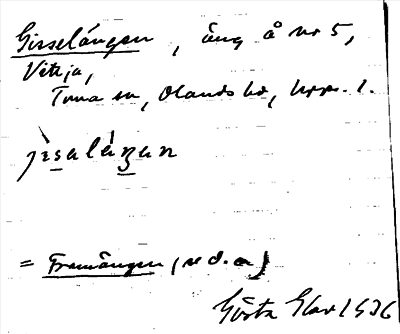 Gisselängen, äng å nr 5,
Vitsja,
Tuna sn, Olands hd, Uppl.
jìsaláŋan
= Framängen (se d.o.)
Gösta Elav 1936